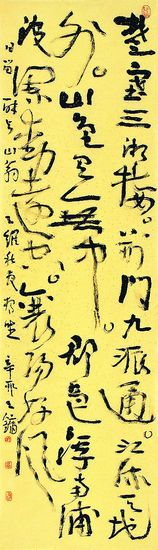 楚塞三湘接荆门九派通江流天地
外山色有无中郡邑浮前浦
波澜动远空襄阳好风
日留醉与山翁王维秋夜独坐辛卯王镛